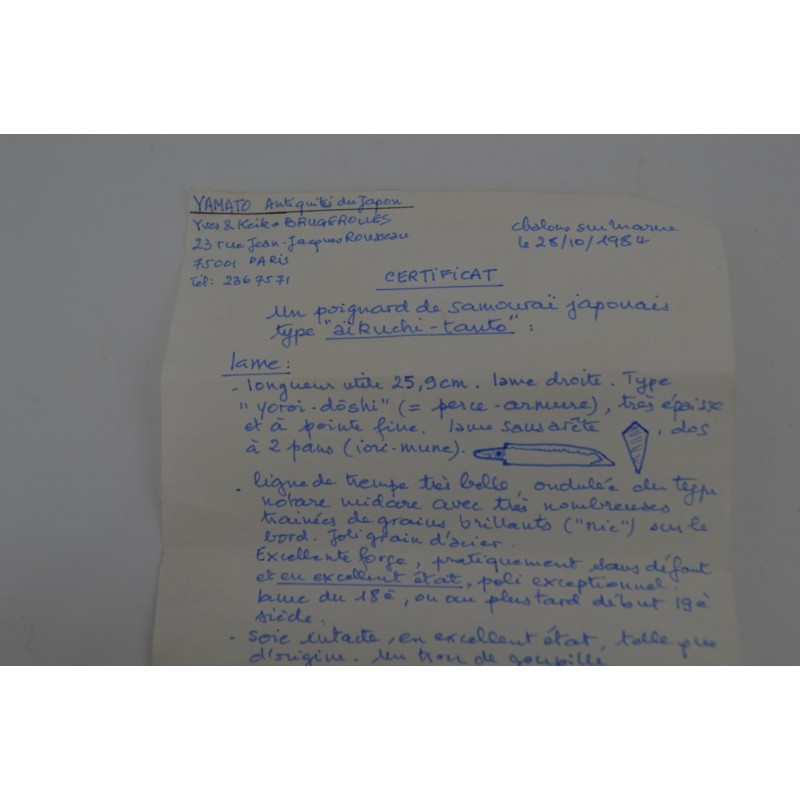 YAMATO Antiquités du Japon
Yves & Keiko BRUGEROLLES
23 rue Jean-Jacques Rousseau
75001 PARIS
Tél: 2367571
Chalons sur Marne
le 28/10/1984
CERTIFICAT
Un poignard de samouraï japonais
type "aïkuchi-tanto" :
lame :
- longueur utile 25,9cm. lame droite. Type
"yoroi-dôshi" (= perce-armure), très épaisse
et à pointe fine. lame sans arête , dos
à 2 pans (iori-mune).
. ligne de trempe très belle, ondulée du type
notare midare avec très nombreuses
trainées de grains brillants ("nie") sur le
bord. Joli grain d'acier.
Excellente forge, pratiquement sans défaut
et en excellent état, poli exceptionnel.
lame du 18è, ou au plus tard début 19è
siècle.
. soie intacte, en excellent état, telle que
d'origine. Un trou de goupille